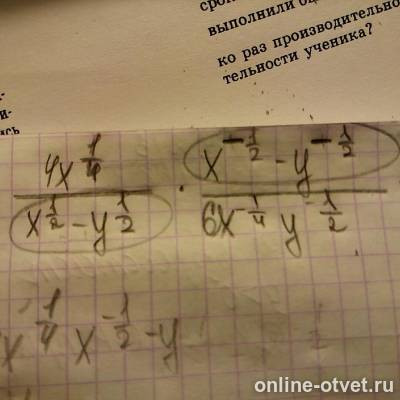 сро
выполнили
ко раз производительно
тельности ученика?
и-
ись
4x^{1/4} / (x^{1/2} - y^{1/2}) · (x^{-1/2} - y^{-1/2}) / (6x^{-1/4} y^{-1/2})
x^{1/4} x^{-1/2} - y
online-otvet.ru